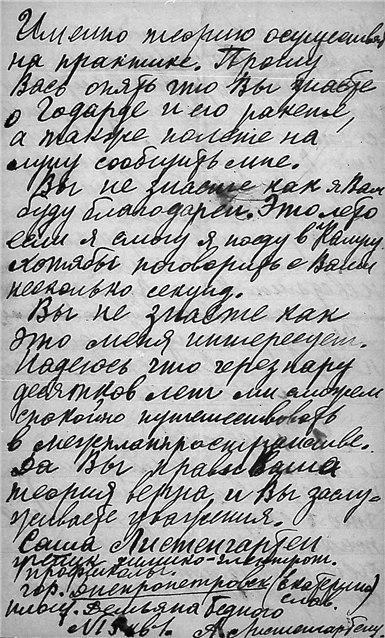 Именно теорию осуществить
на практике. Прошу
Вас опять что Вы знаете
о Годарде и его ракете,
а также полете на
луну сообщить мне.
Вы не знаете как я Вам
буду благодарен. Это лето
если я смогу я поеду в Калугу
хотябы поговорить с Вами
несколько секунд.
Вы не знаете как
это меня интересует.
Надеюсь что через пару
десятков лет мы сможем
спокойно путешествовать
в межпланпространстве.
Да Вы правы Ваша
теория верна и Вы заслу-
живаете уважения.
Саша Листенгартен
ученик химико-электрот.
профшколы
гор. Днепропетровск (Екатерино
слав.
площ. Демьяна Бедного
№ кв 1. А. Листенгартен